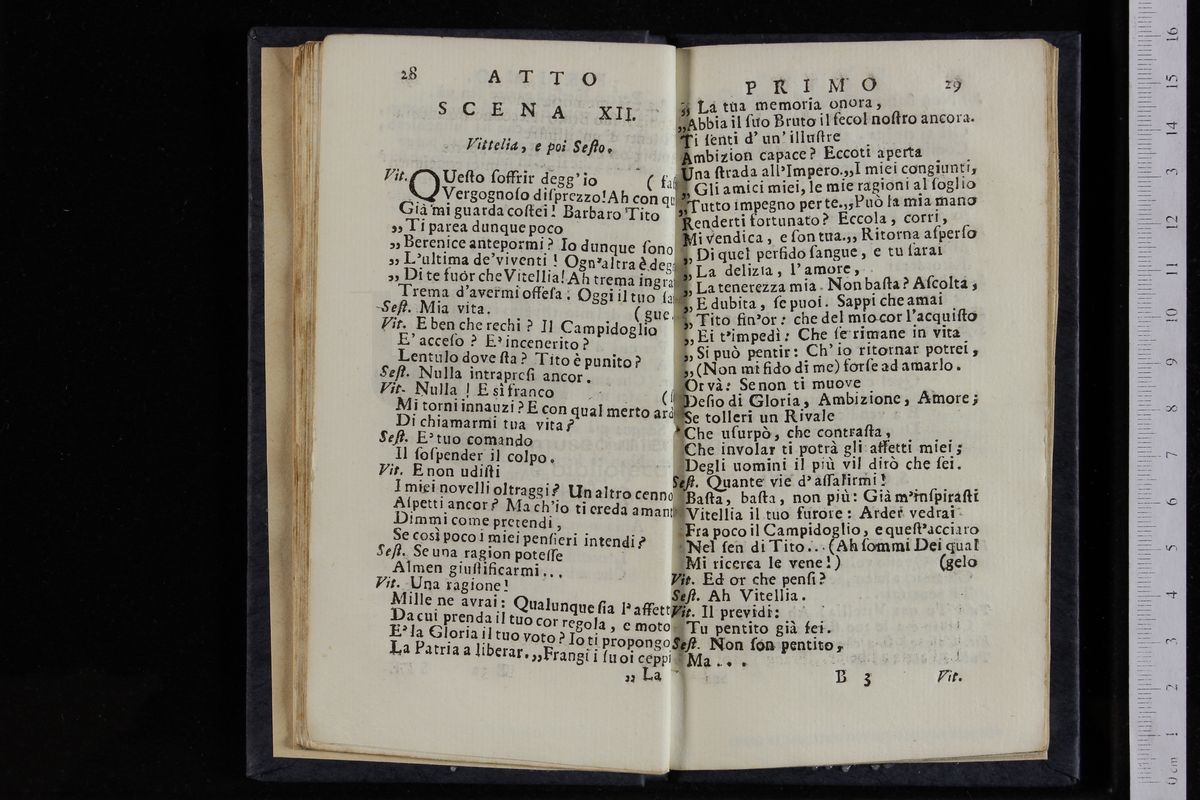 28 ATTO
SCENA XII.
Vittelia, e poi Seſto.
Vit. QUeſto ſoffrir degg'io (
Vergognoſo diſprezzo! Ah con
Già mi guarda coſtei! Barbaro Tito
„ Ti parea dunque poco
„ Berenice antepormi? Io dunque ſono
„ L'ultima de'viventi! Ogn'altra è
„ Di te fuór che Vitellia! Ah trema
Trema d'avermi offeſa. Oggi il tuo
Seſt. Mia vita. (gue.
Vit. E ben che rechi? Il Campidoglio
E' acceſo? E' incenerito?
Lentulo dove ſta? Tito è punito?
Seſt. Nulla intrapreſi ancor.
Vit. Nulla! E sì franco (
Mi torni innauzi? E con qual merto
Di chiamarmi tua vita?
Seſt. E' tuo comando
Il ſoſpender il colpo.
Vit. E non udiſti
I miei novelli oltraggi? Un altro cenno
Aſpetti ancor? Ma ch'io ti creda
Dimmi come pretendi,
Se così poco i miei penſieri intendi?
Seſt. Se una ragion poteſſe
Almen giuſtificarmi...
Vit. Una ragione!
Mille ne avrai: Qualunque ſia l'affett
Da cui prenda il tuo cor regola, e moto
E' la Gloria il tuo voto? Io ti propongo
La Patria a liberar. „Frangi i ſuoi ceppi
„ La
PRIMO 29
„ La tua memoria onora,
„Abbia il ſuo Bruto il ſecol noſtro ancora.
Ti ſenti d'un'illuſtre
Ambizion capace? Eccoti aperta
Una ſtrada all'Impero. „I miei congiunti,
„ Gli amici miei, le mie ragioni al ſoglio
„Tutto impegno per te. „Può la mia mano
Renderti fortunato? Eccola, corri,
Mi vendica, e ſon tua. „ Ritorna aſperſo
„ Di quel perfido ſangue, e tu ſarai
„ La delizia, l'amore,
„ La tenerezza mia. Non baſta? Aſcolta,
„ E dubita, ſe puoi. Sappi che amai
„ Tito fin'or: che del mio cor l'acquiſto
„ Ei t'impedì: Che ſe rimane in vita
„ Si può pentir: Ch'io ritornar potrei,
„ (Non mi fido di me) forſe ad amarlo.
Or và: Se non ti muove
Deſio di Gloria, Ambizione, Amore;
Se tolleri un Rivale
Che uſurpò, che contraſta,
Che involar ti potrà gli affetti miei;
Degli uomini il più vil dirò che ſei.
Seſt. Quante vie d'aſſalirmi!
Baſta, baſta, non più: Già m'inſpiraſti
Vitellia il tuo furore: Arder vedrai
Fra poco il Campidoglio, e queſt'acciaro
Nel ſen di Tito... (Ah ſommi Dei qual
Mi ricerca le vene!) (gelo
Vit. Ed or che penſi?
Seſt. Ah Vitellia.
Vit. Il previdi:
Tu pentito già ſei.
Seſt. Non ſon pentito,
Ma...
B 3 Vit.
0 cm 1 2 3 4 5 6 7 8 9 10 11 12 13 14 15 16